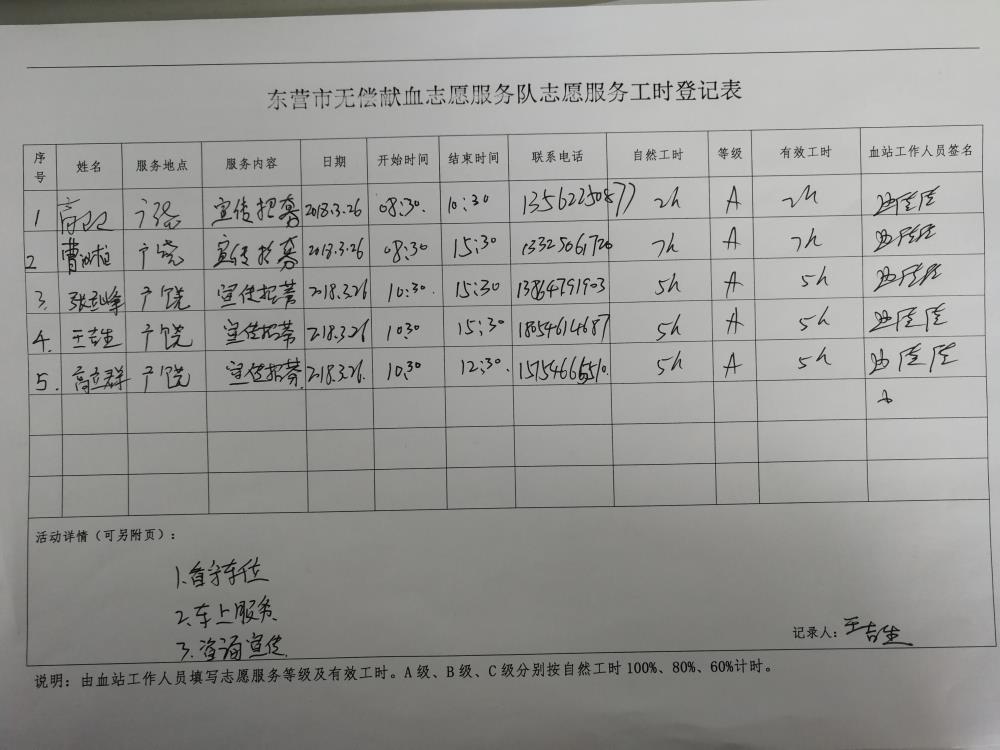 东营市无偿献血志愿服务队志愿服务工时登记表
序号 姓名 服务地点 服务内容 日期 开始时间 结束时间 联系电话 自然工时 等级 有效工时 血站工作人员签名
1 广饶 宣传招募 2018.3.26 08:30. 10:30 13562250877 2h A 2h
2 广饶 宣传招募 2018.3.26 08:30 15:30 13325061720 7h A 7h
3. 广饶 宣传招募 2018.3.26 10:30. 15:30 13864791903 5h A 5h
4. 王吉生 广饶 宣传招募 2018.3.26 10:30 15:30 18054614687 5h A 5h
5. 高立群 广饶 宣传招募 2018.3.26. 10:30 12:30 5h A 5h
活动详情（可另附页）：
1.看守车位
2.车上服务
3.咨询宣传
记录人：王吉生
说明：由血站工作人员填写志愿服务等级及有效工时。A级、B级、C级分别按自然工时100%、80%、60%计时。